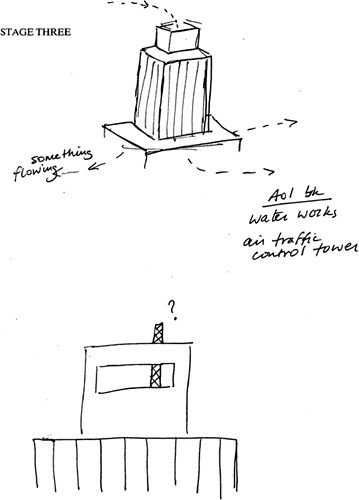 STAGE THREE
something
flowing
AOI bk
water works
air traffic
control tower
?